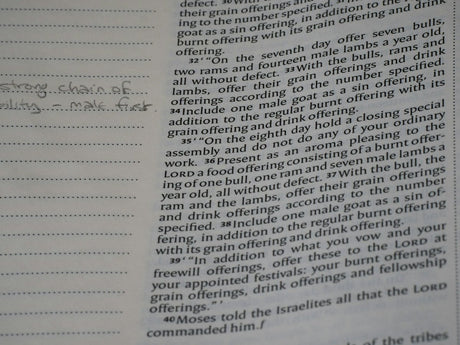 strong chain of
– male first
defect. 30With
their grain offerings and drink
ing to the number specified. 31
goat as a sin offering, in addition to the regular
burnt offering with its grain offering and drink
offering.
32" 'On the seventh day offer seven bulls,
two rams and fourteen male lambs a year old,
all without defect. 33With the bulls, rams and
lambs, offer their grain offerings and drink
offerings according to the number specified.
34Include one male goat as a sin offering, in
addition to the regular burnt offering with its
grain offering and drink offering.
35" 'On the eighth day hold a closing special
assembly and do not do any of your ordinary
work. 36Present as an aroma pleasing to the
LORD a food offering consisting of a burnt offer-
ing of one bull, one ram and seven male lambs a
year old, all without defect. 37With the bull, the
ram and the lambs, offer their grain offerings
and drink offerings according to the number
specified. 38Include one male goat as a sin of-
fering, in addition to the regular burnt offering
with its grain offering and drink offering.
39" 'In addition to what you vow and your
freewill offerings, offer these to the LORD at
your appointed festivals: your burnt offerings,
grain offerings, drink offerings and fellowship
offerings.' "
40Moses told the Israelites all that the LORD
commanded him.f
of the tribes